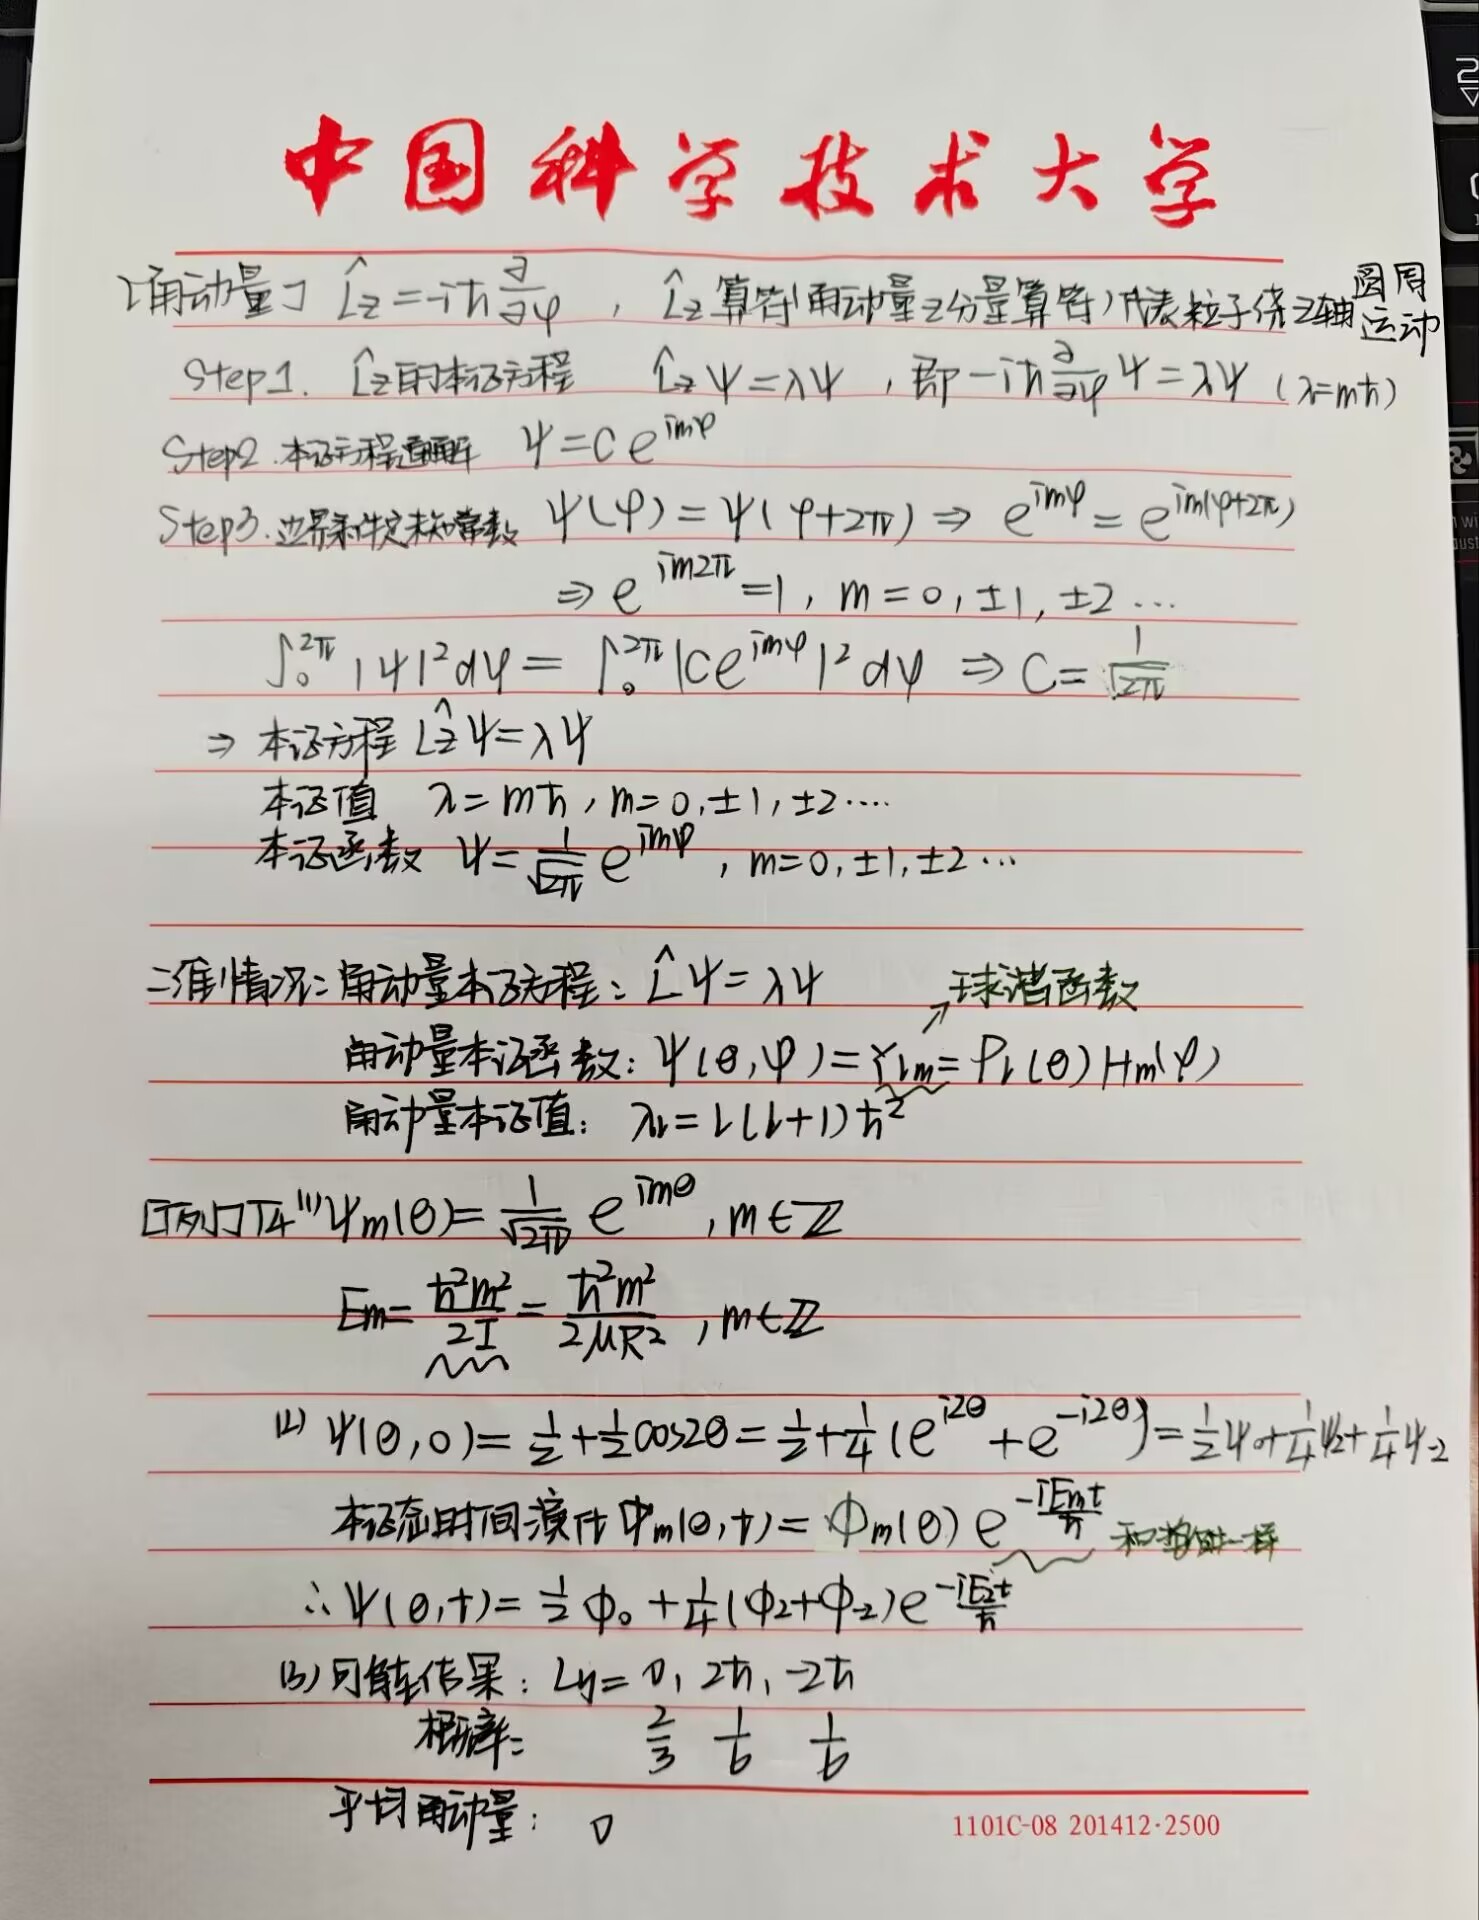 中国科学技术大学
[角动量] L̂z=-iħ∂/∂φ , L̂z算符(角动量z分量算符)代表粒子绕z轴圆周运动
Step1. L̂z的本征方程 L̂zψ=λψ , 即-iħ∂/∂φψ=λψ (λ=mħ)
Step2.本征方程通解 ψ=Ce^{imφ}
Step3.边界条件定未知常数 ψ(φ)=ψ(φ+2π)⇒e^{imφ}=e^{im(φ+2π)}
⇒e^{im2π}=1, m=0,±1,±2…
∫₀^{2π}|ψ|²dφ=∫₀^{2π}|Ce^{imφ}|²dφ⇒C=1/√2π
⇒本征方程L̂zψ=λψ
本征值 λ=mħ,m=0,±1,±2….
本征函数 ψ=1/√2π e^{imφ}, m=0,±1,±2…
二维情况:角动量本征方程:L̂ψ=λψ ↗球谐函数
角动量本征函数:ψ(θ,φ)=Y_{lm}=P_l(θ)H_m(φ)
角动量本征值: λ_l=l(l+1)ħ²
T4 (1)ψ_m(θ)=1/√2π e^{imθ},m∈ℤ
E_m=ħ²m²/2I=ħ²m²/2μR²,m∈ℤ
(2) ψ(θ,0)=1/2+1/2cos2θ=1/2+1/4(e^{i2θ}+e^{-i2θ})=1/2ψ₀+1/4ψ₂+1/4ψ₋₂
本征态时间演化Φ_m(θ,t)=Φ_m(θ)e^{-iE_mt/ħ} 一样
∴ψ(θ,t)=1/2Φ₀+1/4(Φ₂+Φ₋₂)e^{-iE₂t/ħ}
(3)可能结果:Ly=0,2ħ,-2ħ
概率: 2/3 1/6 1/6
平均角动量: 0
1101C-08 201412·2500